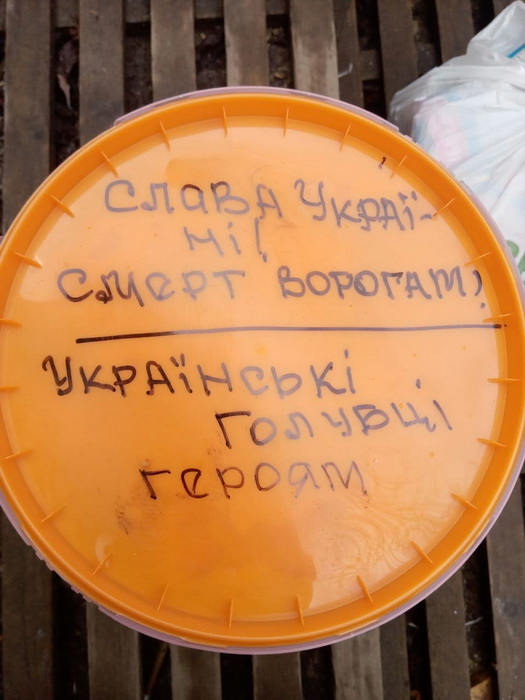 Слава Украї-
ні!
Смерт ворогам!
Українські
голубці
героям